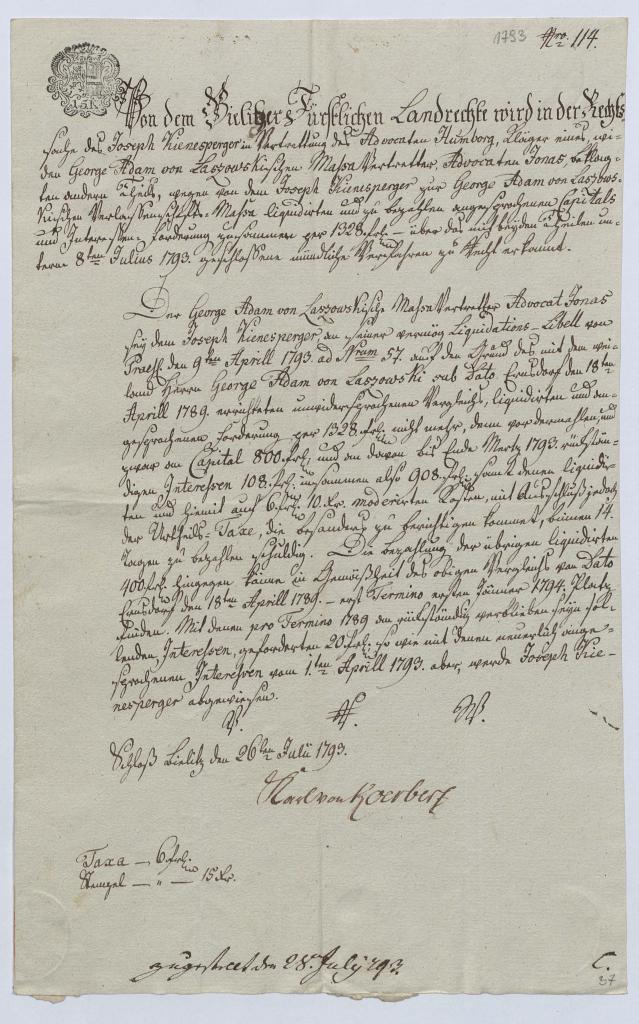 1793 Nro. 114.
15K
Von dem Bielitzer Fürstlichen Landrechte wird in der Rechts
sache des Joseph Kienesperger in Vertrettung des Advocaten Humborg, Kläger eines, wi-
den George Adam von Lassowskischen Massa Vertretter, Advocaten Jonas, beklag-
ten andern Theils, wegen von dem Joseph Kienesperger zur George Adam von Lassows-
kischen Verlassenschafts-Massa liquidirten und zu bezahlen angesprochenen Capitals
und Interessen-Forderung zusammen per 1328 frl. – über das mit beyden Theilen un-
term 8ten Julius 1793. geschlossene mündliche Verfahren zu Recht erkannt.
Der George Adam von Lassowskische Massa Vertretter Advocat Jonas
sey dem Joseph Kienesperger, an seiner vermög Liquidations-Libell von
Praest. den 9ten Aprill 1793. ad Nrum 57. auf den Grund des mit dem wei-
land Herrn George Adam von Lassowski sub Dato Ernsdorf den 18ten
Aprill 1789. errichteten unwidersprochenen Vergleichs, liquidirten und an-
gesprochenen Forderung per 1328 frl. nicht mehr, denn vordermahlen, und
zwar an Capital 800 frl. und an davon bis Ende Mertz 1793. rückstän-
digen Interessen 108 frl. zusammen also 908 frl. samt denen liquidir-
ten und hiemit auf 6 frl. 10 Xr. moderirten Kosten, mit Ausschluß jedoch
der Urtheils-Taxe, die besonders zu berichtigen kommet, binnen 14.
Tagen zu bezahlen schuldig. Die Bezahlung der übrigen liquidirten
400 frl. hingegen könne in Gemäßheit des obigen Vergleichs von Dato
Ernsdorf den 18ten Aprill 1789. – erst Termino ersten Jänner 1794. Platz
finden. Mit denen pro Termino 1789 an rückständig verblieben seyn sol-
lenden Interessen, geforderten 20 frl. so wie mit denen neuerlich ange-
sprochenen Interessen vom 1ten Aprill 1793. aber, werde Joseph Kie-
nesperger abgewiesen.
V. R. W.
Schloß Bielitz den 26ten Julii 1793.
Karl von Koerber
Taxa – 6 frl.
Stempel – " – 15 Xr.
zugestellt den 28. July 793.
C.
37